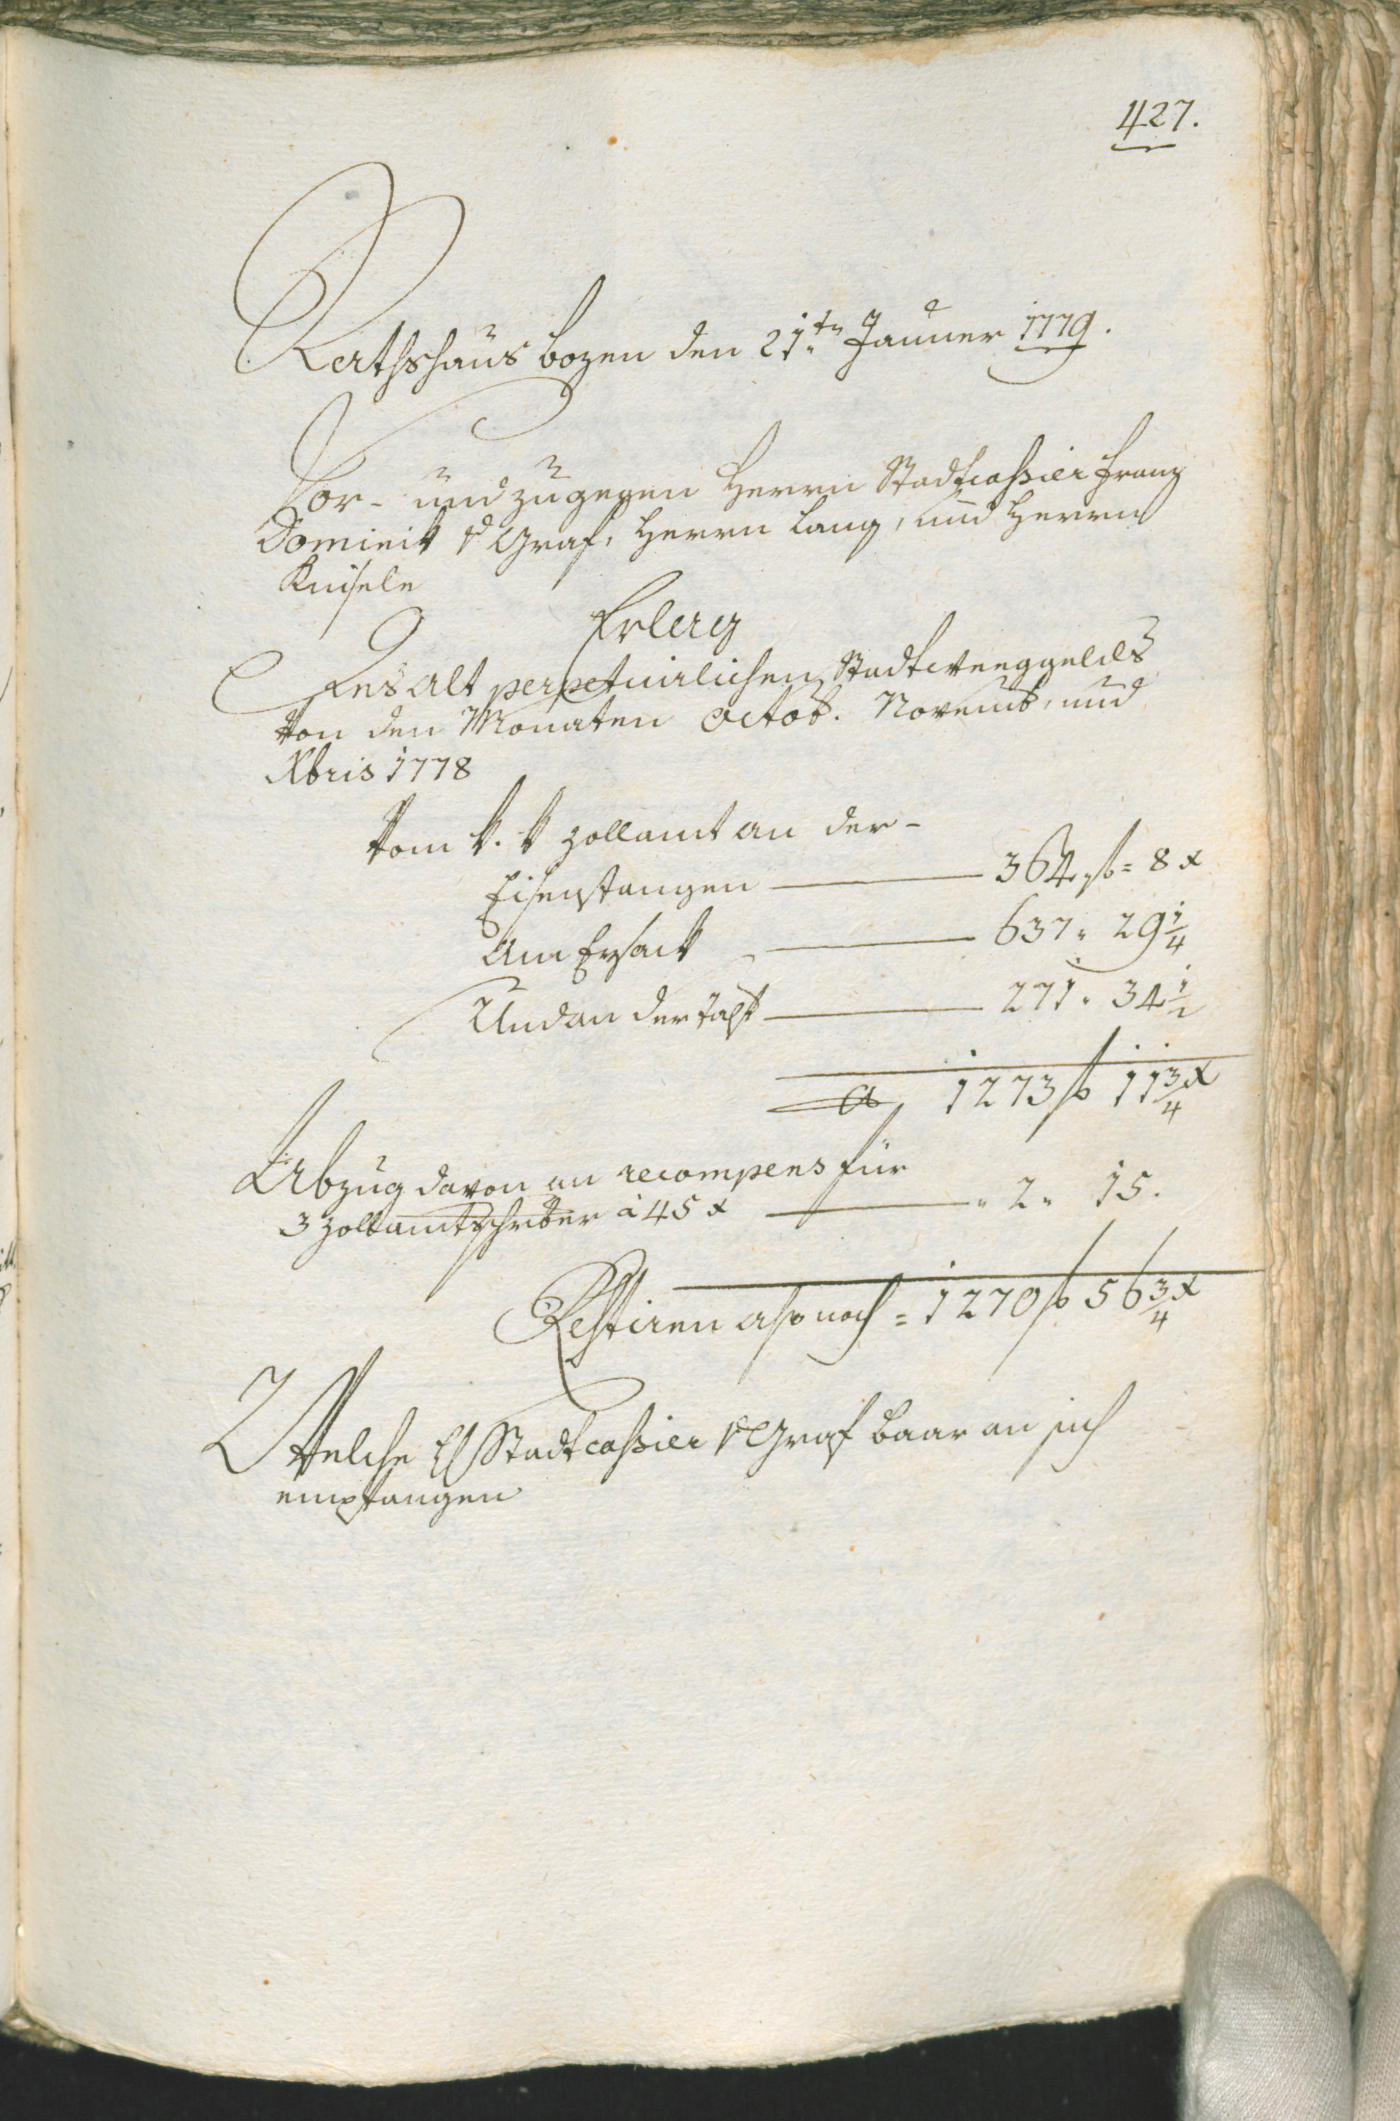 427.
Rathshaus bozen den 21.ten Jauner 1779.
Vor- und zugegen Herrn Stadtcassier Franz
Dominik v Graf, Herrn Lang, und Herrn
Knisele
Erlag
Des alt perpetuirlichen Stadtweeggelds
von den Monaten Octob. Novemb, und
Xbris 1778
Vom k. k zollamt an der-
Eisenstangen 364 f = 8 x
Am Eysack 637 " 29 1/4
Und an der talf 271 " 34 1/2
a 1273 f 11 3/4 x
Abzug davon an recompens für
3 zollamtschriber à 45 x " 2 " 15.
Restiren also noch = 1270 f 56 3/4 x
Welche H Stadtcassier v Graf baar an sich
empfangen